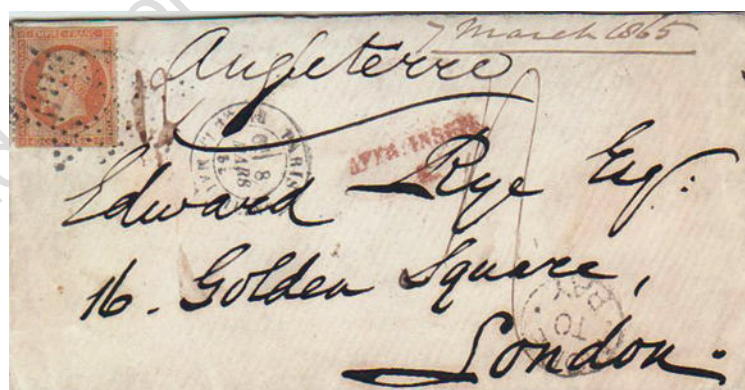 7 March 1865
EMPIRE FRANC
Angleterre
PARIS
8
MARS
AFFR. INSUFF.
Edward Rye Esq:
16. Golden Square,
London.
TO